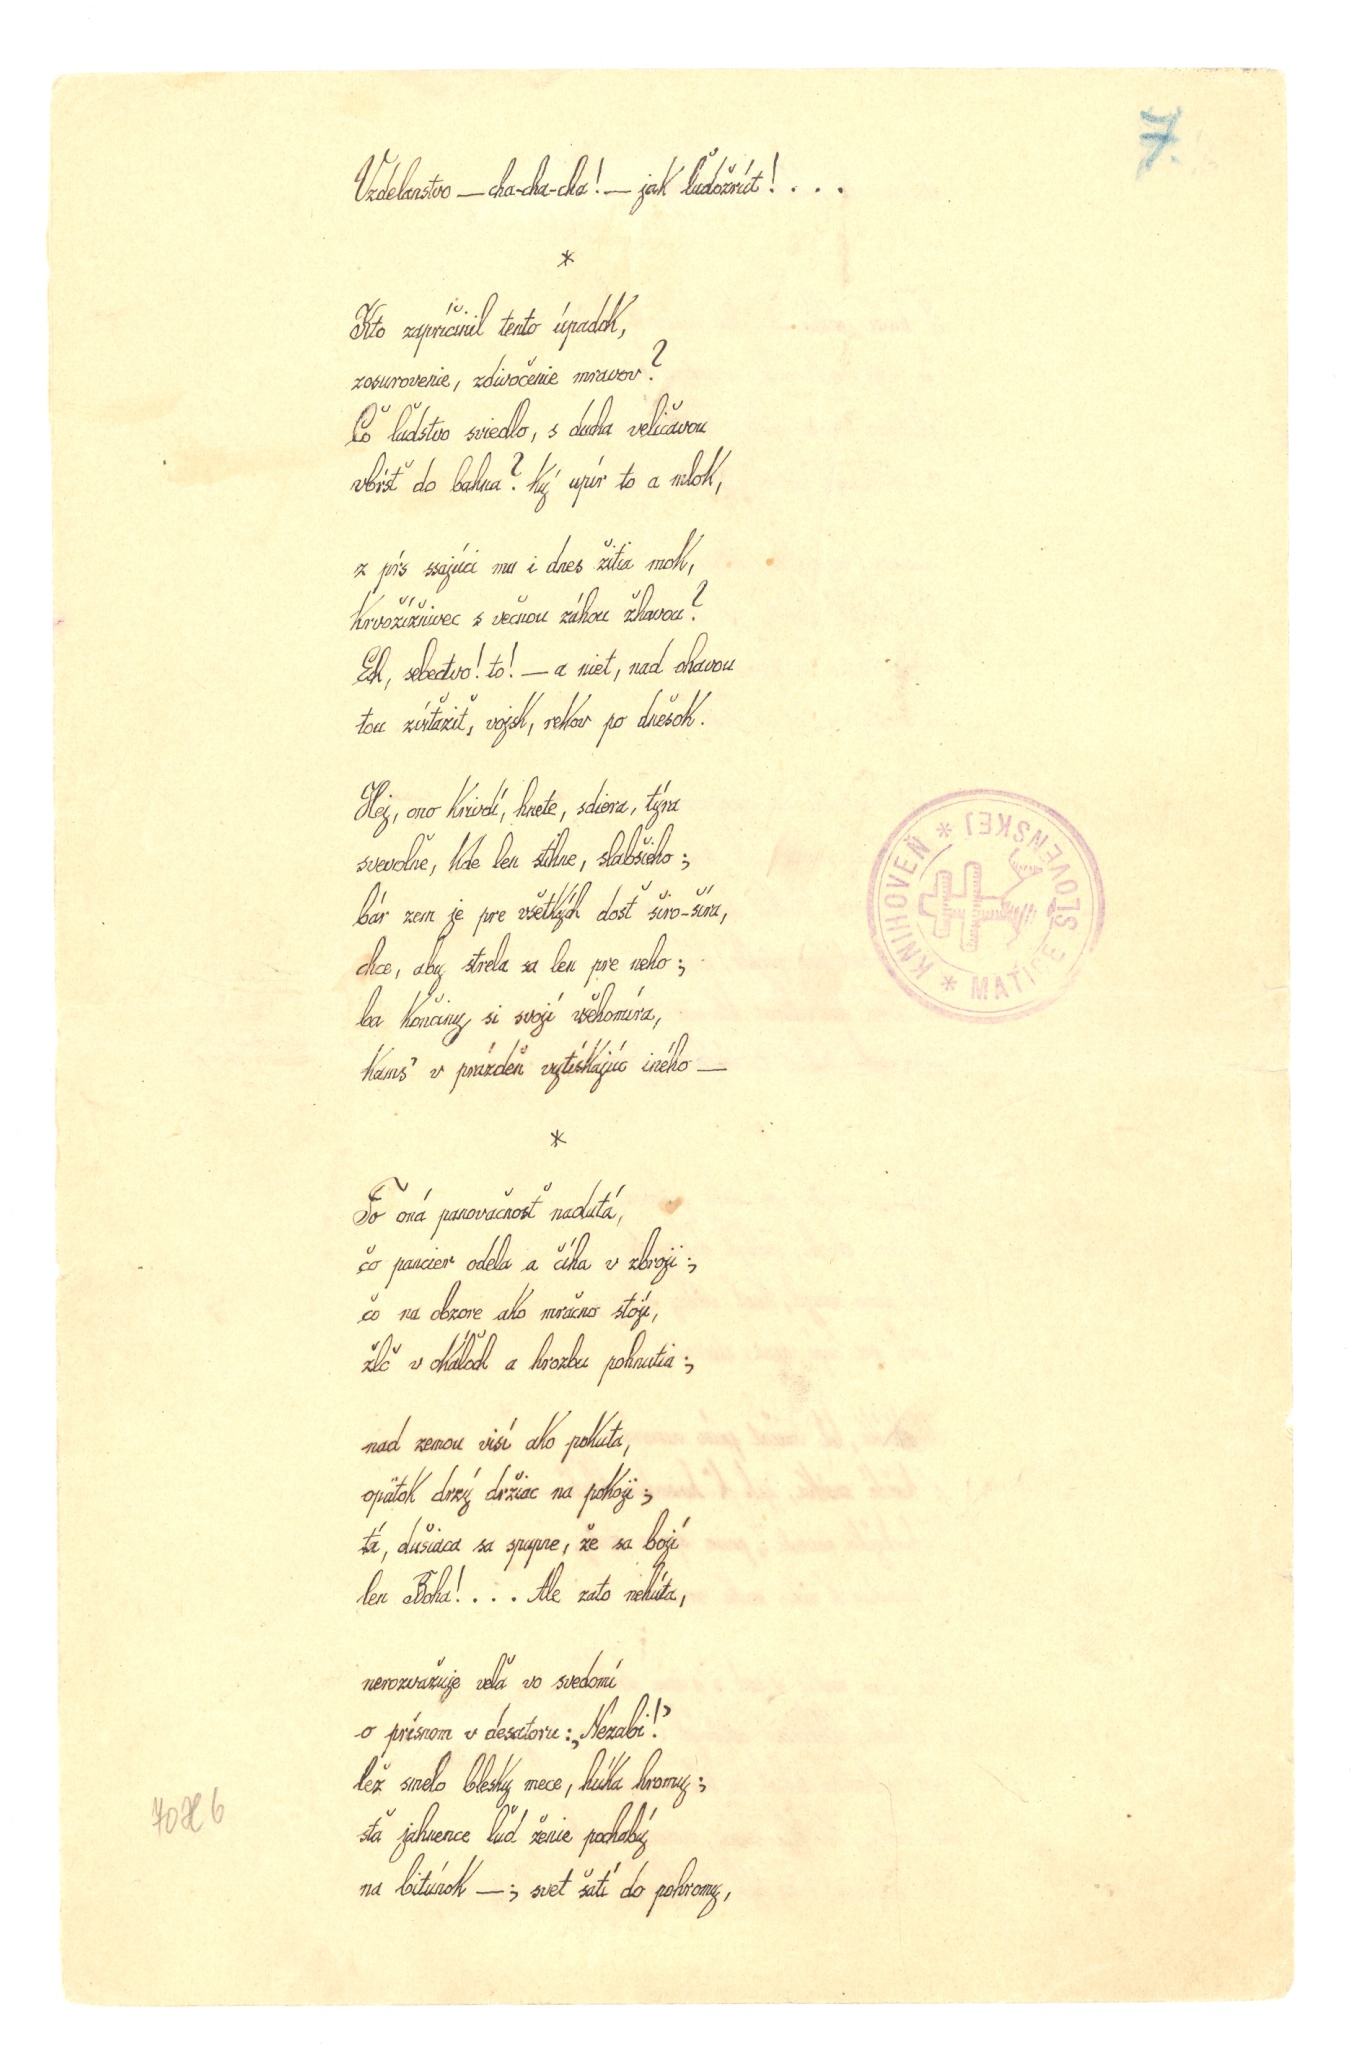 7.
Vzdelanstvo — cha-cha-cha! — jak ľudožrút! . . .
*
Kto zapríčinil tento úpadok,
zosurovenie, zdivočenie mravov?
Čo ľudstvo sviedlo, s ducha veličavou
vbŕsť do bahna? Ký upír to a mlok,
z pŕs ssajúci mu i dnes žitia mok,
krvožížnivec s večnou záhou žhavou?
Eh, sebectvo! to! — a niet, nad ohavou
tou zvíťaziť, vojsk, rekov po dnešok.
Hej, ono krivdí, hnete, sdiera, týra
svevoľne, kde len stihne, slabšieho;
bár zem je pre všetkých dosť širo-šíra,
chce, aby strela sa len pre neho;
ba končiny si svojí všehomíra,
kams' v prázdeň vytískajúc iného —
*
To oná panovačnosť nadutá,
čo pancier odela a číha v zbroji;
čo na obzore ako mračno stojí,
žlč v okáľoch a hrozbu pohnutia;
nad zemou visí ako pokuta,
opätok drzý držiac na pokoji;
tá, dušiaca sa spupne, že sa bojí
len Boha! . . . Ale zato nehúta,
nerozvažuje veľa vo svedomí
o prísnom v desatoru: „Nezabi!”
lež smelo blesky mece, húka hromy;
sťa jahnence ľud ženie pochabý
na bitúnok —; svet šatí do pohromy,
KNIHOVEŇ * MATICE SLOVENSKEJ *
70 H 6